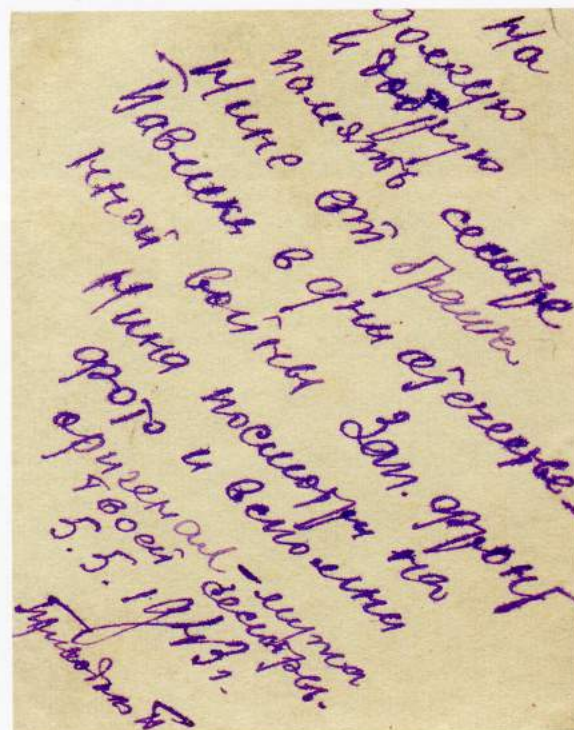 На
долгую
и добрую
память сестре
Нине от брата
Павлика в дни отечестве-
нной войны Зап. фронт
Нина посмотри на
фото и вспомни
оригенал - мужа
твоей сестры.
5.5.1943г.